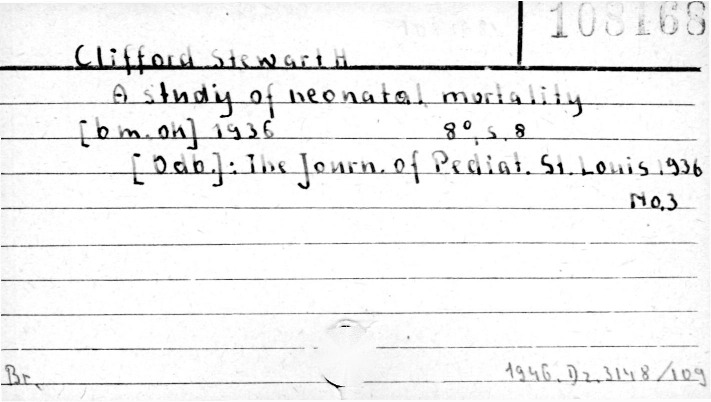 108168
Clifford Stewart H
A study of neonatal mortality
[b m. on] 1936 8°, s. 8
[Odb.]: The Journ. of Pediat. St. Louis 1936
No.3
Br. 1946. Dz. 3148/109